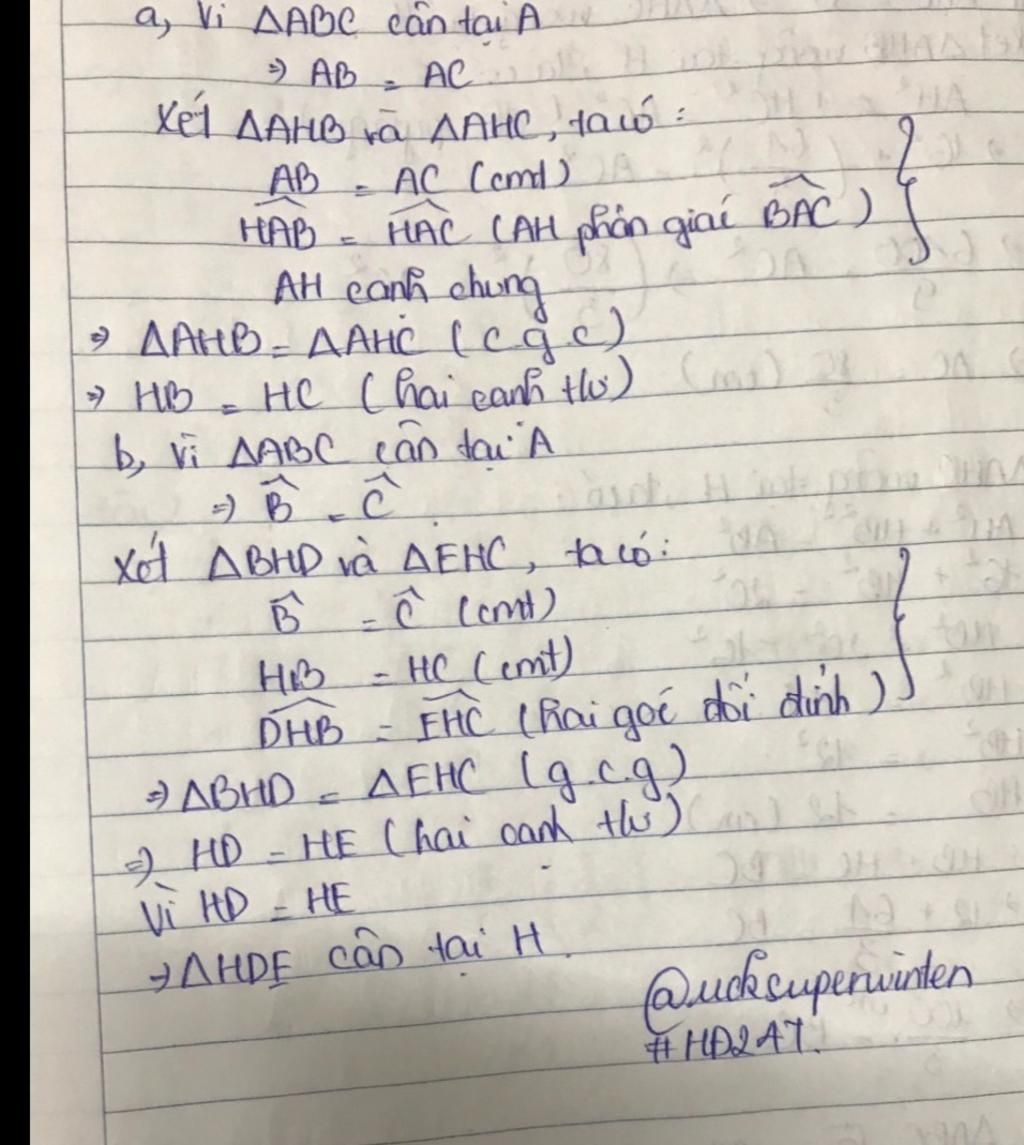 a, Vì ΔABC cân tại A
⇒ AB = AC
Xét ΔAHB và ΔAHC, ta có :
AB = AC (cmt)
HAB = HAC (AH phân giác BAC)
AH cạnh chung
⇒ ΔAHB = ΔAHC (c g c)
⇒ HB = HC (hai cạnh t/ư)
b, Vì ΔABC cân tại A
⇒ B̂ = Ĉ
Xét ΔBHD và ΔEHC, ta có :
B̂ = Ĉ (cmt)
HB = HC (cmt)
DHB = EHC (hai góc đối đỉnh)
⇒ ΔBHD = ΔEHC (g.c.g)
⇒ HD = HE (hai cạnh t/ư)
Vì HD = HE
⇒ ΔHDE cân tại H.
@ucksuperwinten
#HD2A7.